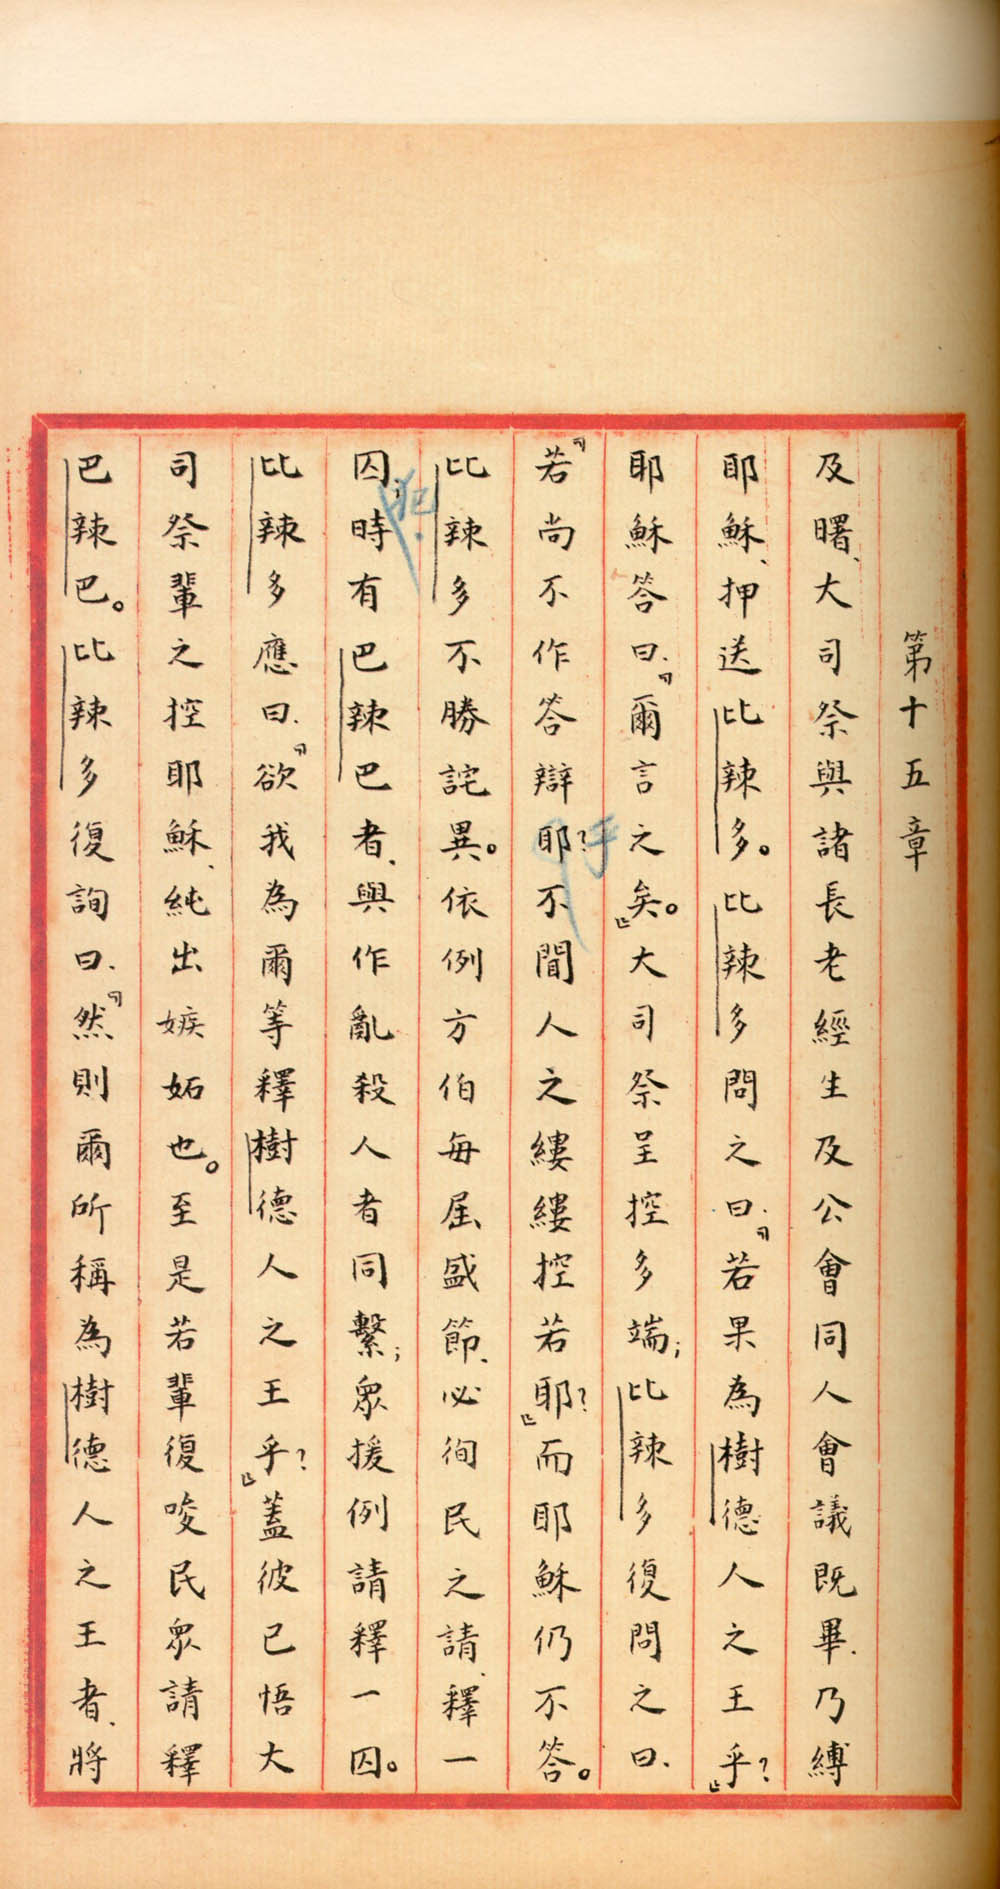 第十五章
及曙、大司祭與諸長老經生及公會同人會議既畢、乃縛
耶穌、押送比辣多。比辣多問之曰、「若果為樹德人之王乎?」
耶穌答曰、「爾言之矣。」大司祭呈控多端;比辣多復問之曰、
「若尚不作答辯耶?乎不聞人之縷縷控若耶?」而耶穌仍不答。
比辣多不勝詫異。依例方伯每屆盛節、必徇民之請、釋一
囚;犯時有巴辣巴者、與作亂殺人者同繫;眾援例請釋一囚。
比辣多應曰、「欲我為爾等釋樹德人之王乎?」蓋彼已悟大
司祭輩之控耶穌、純出嫉妬也。至是若輩復唆民眾請釋
巴辣巴。比辣多復詢曰、「然則爾所稱為樹德人之王者、將